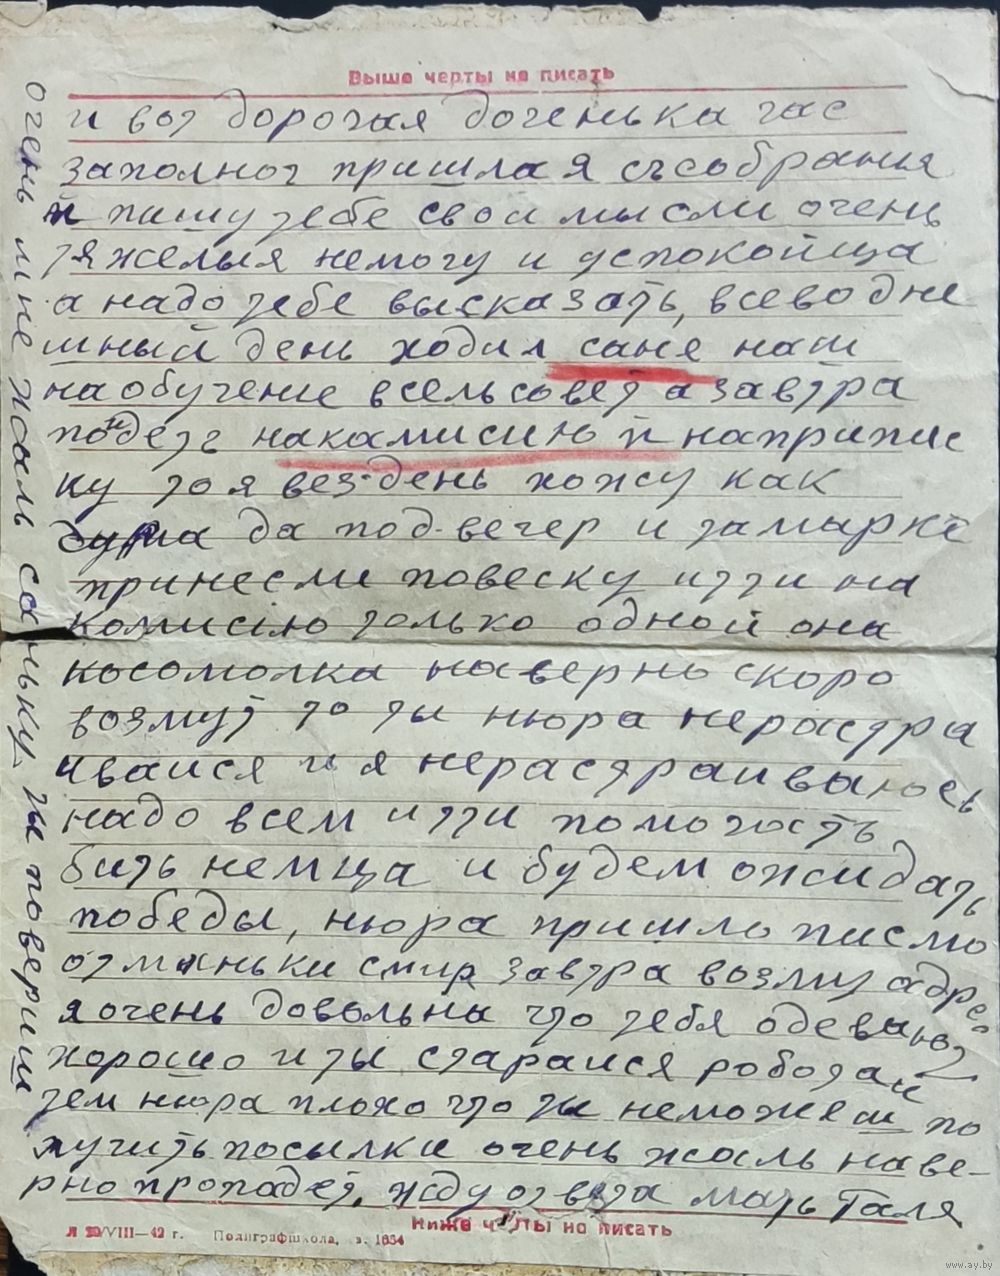 Выше черты не писать
и вот дорогая доченька час
заполноч пришла я съсобрания
и пишу тебе свои мысли очень
тяжелыя немогу и успокоица
а надо тебе высказать, всеводне
шный день ходил саня наш
на обучение всельсовет а завтра
пойдете накамисию и наприпис
ку то я вез-день хожу как
да под-вечер и тамарке
принесли повеску итти на
комисию только одной она
косомолка наверно скоро
возмут то ты нюра нерастра
ивайся и я нерастраиваюсь
надо всем итти помогать
бить немца и будем ожидать
победы, нюра пришло писмо
отманьки смир завтра возму адрес
я очень довольна что тебя одевают
хорошо и ты старайся роботай
тем нюра плохо что ты неможеш по
лучить посылки очень жаль наве-
рно пропадет, жду ответа мать Галя
очень мне жаль саньку ты повериш
Ниже черты не писать
Л 29/VIII—42 г. Полиграфшкола, з. 1634
www.ay.by